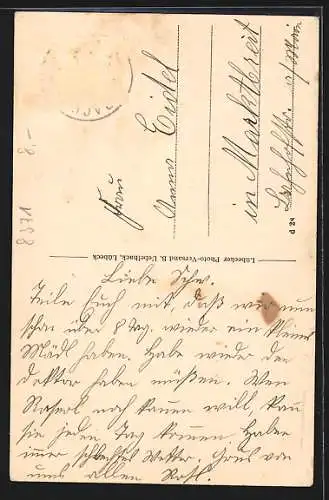 Frau
Anna Eidel
in Marktbreit
Bahnhofstr. a/Main
d 24
Lübecker Photo-Versand B. Uebelhack, Lübeck
8371 8,-
Liebe Schw.
Teile Euch mit, daß wir nun
schon über 8 Tag. wieder ein kleines
Mädl haben. Habe wieder den
Doktor haben müßen. Wen
noch kauen will, kan
sie jeden Tag kommen. Haben
imer schlechtes Wetter. Grus von
uns allen Rosl.